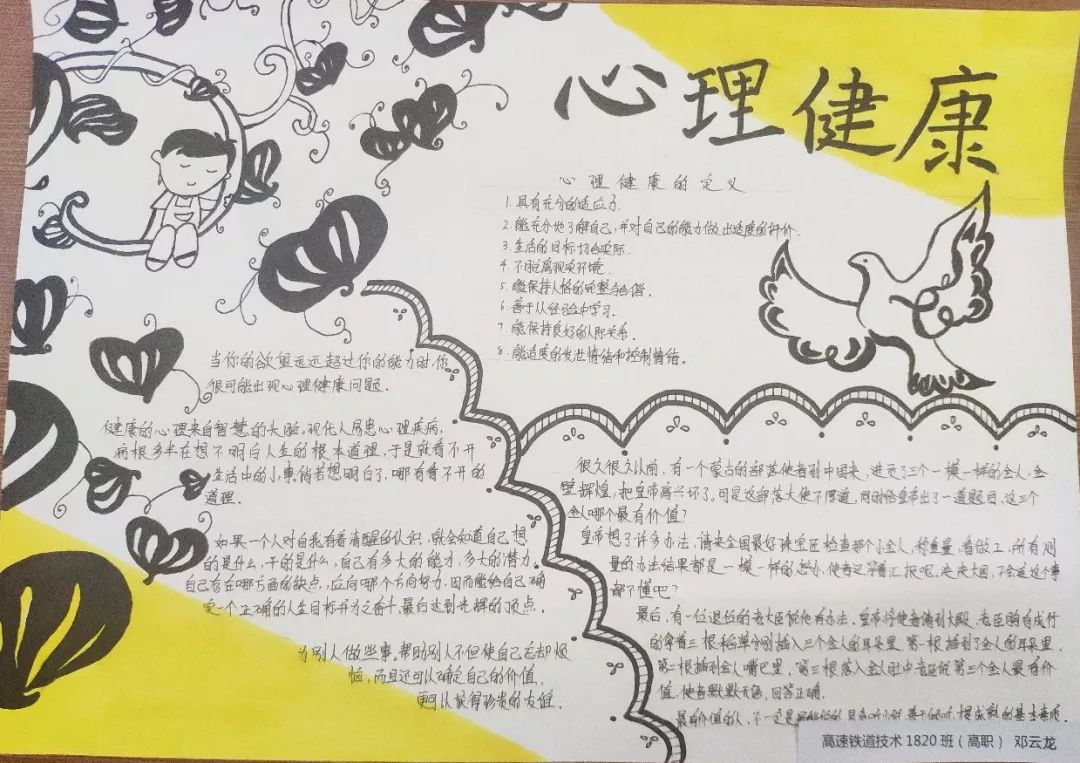 心理健康
心理健康的定义
1.具有充分的适应力.
2.能充分地了解自己,并对自己的能力做出适度的评价.
3.生活的目标切合实际.
4.不脱离现实环境.
5.能保持人格的完整与和谐.
6.善于从经验中学习.
7.能保持良好的人际关系.
8.能适度的发泄情绪和控制情绪.
当你的欲望远远超过你的能力时,你
很可能出现心理健康问题.
健康的心理来自智慧的大脑.现代人易患心理疾病,
病根多半在想不明白人生的根本道理,于是就看不开
生活中的小事倘若想明白了,哪有看不开的
道理.
如果一个人对自我有着清醒的认识,就会知道自己想
的是什么,干的是什么,自己有多大的能力,多大的潜力.
自己存在哪方面的缺点,应向哪个方向努力,因而能给自己确
定一个正确的人生目标并为之奋斗,最后达到光辉的顶点.
为别人做些事.帮助别人不但使自己忘却烦
恼,而且还可以确定自己的价值,
更可以获得珍贵的友谊.
很久很久以前,有一个蒙古的部落使者到中国来,进贡了三个一模一样的金人,金
壁辉煌,把皇帝高兴坏了,可是这部落大使不厚道,同时给皇帝出了一道题目,这三个
金人哪个最有价值?
皇帝想了许多办法,请来全国最好珠宝匠检查那个小金人,称重量,看做工,所有测
量的办法结果都是一模一样的怎办,使者还等着汇报呢,泱泱大国,不会连这个事
都不懂吧?
最后,有一位退位的老大臣说他有办法.皇帝将使者请到大殿.老臣胸有成竹
的拿着三根稻草分别插入三个金人的耳朵里.第一根插到了金人的耳朵里.
第二根插到金人嘴巴里,第三根落入金人肚中老臣说第三个金人最有价
值,使者默默无语,回答正确.
最有价值的人,不一定是 善于倾听,是成熟的基本素质.
高速铁道技术1820班(高职) 邓云龙